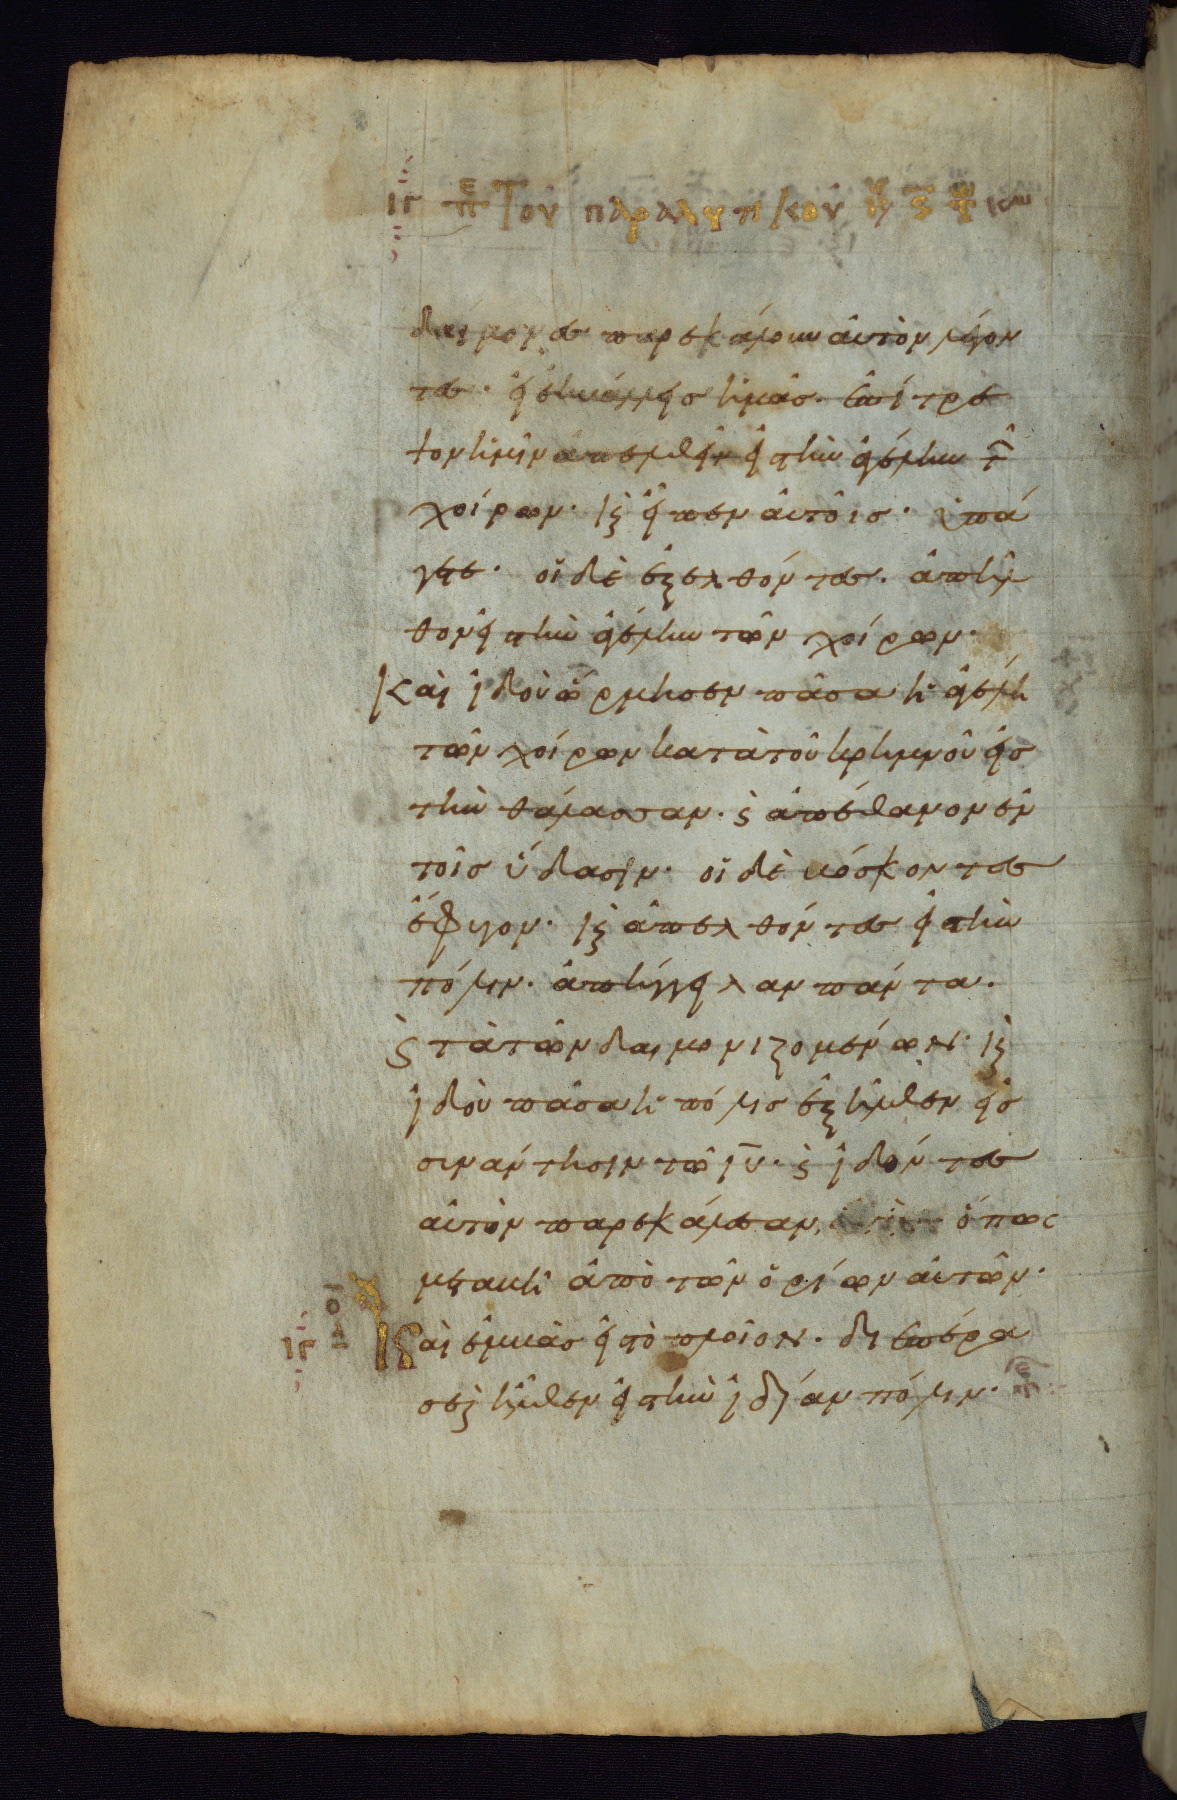 ιγ πε Τοῦ παραλυτικοῦ
δαίμονες παρεκάλουν αὐτὸν λέγον
τες· εἰ ἐκβάλλεις ἡμᾶς. ἐπίτρε
ψον ἡμῖν ἀπελθεῖν εἰς τὴν ἀγέλην τῶν
χοίρων· κ εἶπεν αὐτοῖς· ὑπά
γετε· οἱ δὲ ἐξελθόντες. ἀπῆλ
θον εἰς τὴν ἀγέλην τῶν χοίρων·
Καὶ ἰδοὺ ὥρμησεν πᾶσα ἡ ἀγέλη
τῶν χοίρων κατὰ τοῦ κρημνοῦ εἰς
τὴν θάλασσαν. κ ἀπέθανον ἐν
τοῖς ὕδασιν· οἱ δὲ βόσκοντες
ἔφυγον· κ ἀπελθόντες εἰς τὴν
πόλιν. ἀπήγγειλαν πάντα.
κ τὰ τῶν δαιμονιζομένων· κ
ἰδοὺ πᾶσα ἡ πόλις ἐξῆλθεν εἰς
συνάντησιν τῶ ιυ· κ ἰδόντες
αὐτὸν παρεκάλεσαν ὅπως
μεταβῆ ἀπὸ τῶν ὁρίων αὐτῶν·
ιγ Καὶ ἐμβὰς εἰς τὸ πλοῖον. διεπέρα
σε κ ἦλθεν εἰς τὴν ἰδίαν πόλιν·